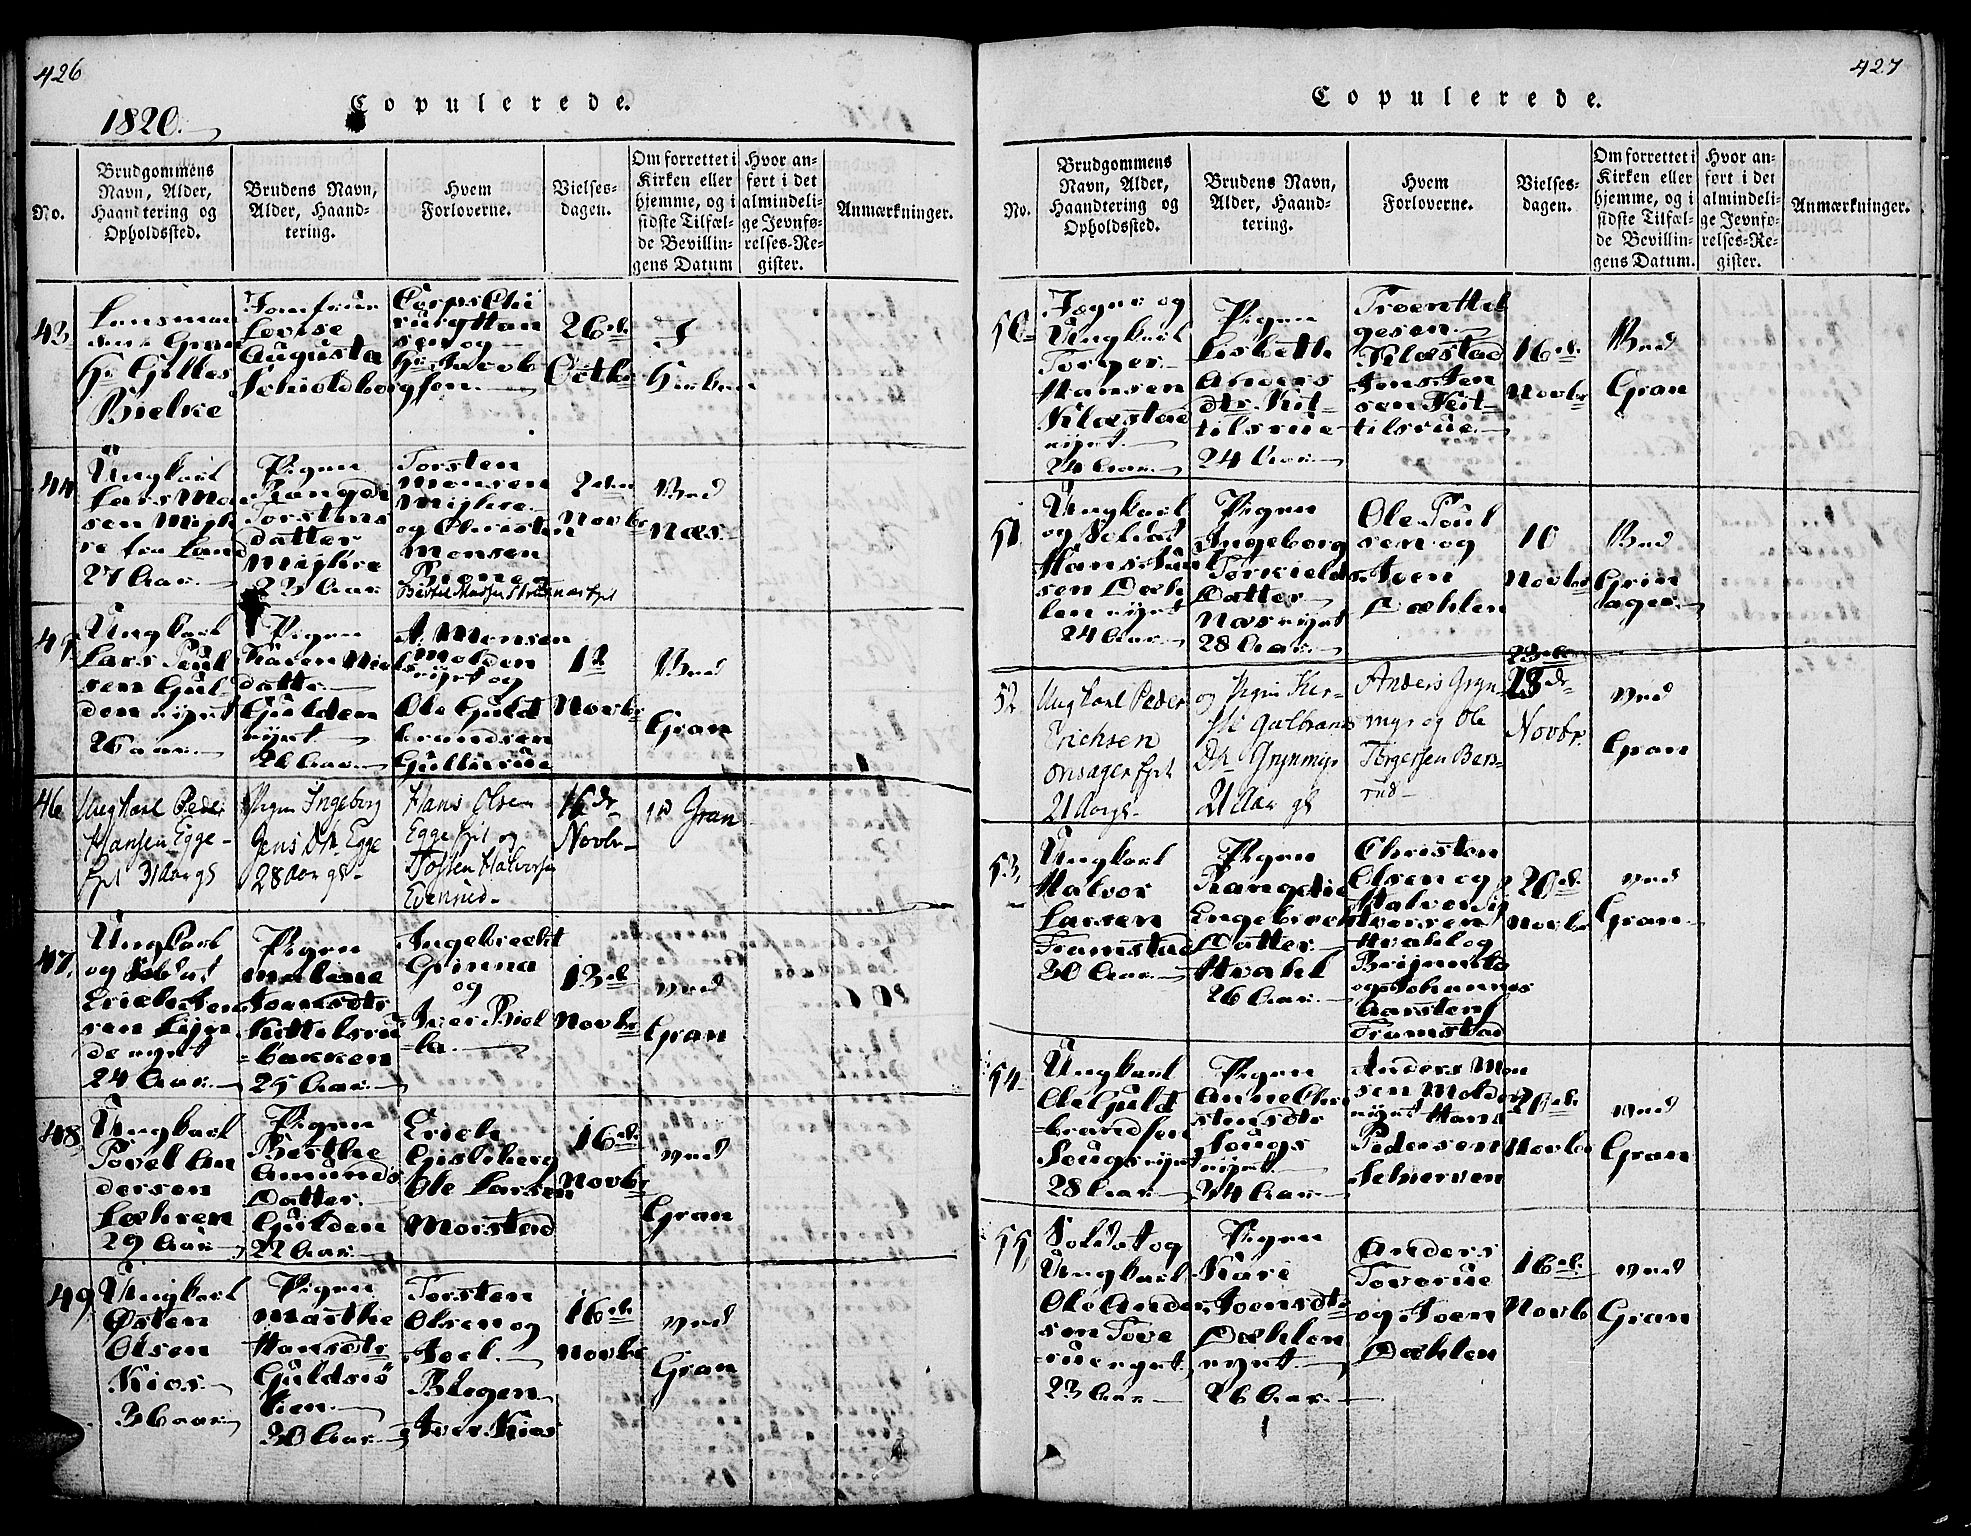 426
1820.
Copulerede.
No.
Brudgommens
Navn, Alder,
Haandtering og
Opholdssted.
Brudens Navn,
Alder, Haand-
tering.
Hvem
Forloverne.
Vielses-
dagen.
Om forrettet i
Kirken eller
hjemme, og i
sidste Tilfæl-
de Bevillin-
gens Datum
Hvor an-
ført i det
almindeli-
ge Jevnfø-
relses-Re-
gister.
Anmærkninger.
43
Lensman
Gran
Hr Gilles
Bielke
Jomfrue
Lovise
Augusta
Schiotsbor
Corps Chi
rurg Han
sen og
Hr Jacob
gsen
26de
Octbr
I
Kirken
44
Ungkarl
Lars Mon
sen Migh
re fra Land
27 Aar
Pigen
Rangdi
Torstens
datter
Mighre
23 Aar
Torsten
Monsen
Mighre
og Christen
Monsen
2den
Novbr
Ved
Næs
45
Ungkarl
Lars Poul
sen Gul
den eignt
26 aar
Pigen
Karen Niel
datter
Gulden
eignt
26 Aar
A. Monsen
Molden
eignt og
Ole Guld
brandsen
Gullerud
12
Novbr
Ved
Gran
46
Ungkarl Peder
Hansen Egge
Ept 31 Aar gl
Pigen Ingeborg
Jens Dtr Egge
28 Aar gl
Hans Olsen
Egge Ept og
Tosten Halvorsen
Evenrud
16de
Novbr
Gran
47.
Ungkarl
og Soldat
Erich
sen
de eignt
24 Aar
Pigen
Malene
Joensdtr
Kittelsrud
bakken
25 Aar
Ingebrecht
Grinna
og
Iver Biel
la
13de
Novbr
ved
Gran
48
Ungkarl
Povel An
dersen
Læhren
29 Aar
Pigen
Berthe
Amunds
Datter
Gulden
22 Aar
Erich
Gisleberg
Ole Larsen
Morstad
16de
Novbr
ved
Gran
49
Ungkarl
Østen
Olsen
Kios
36 aar
Pigen
Marthe
Hansdtr
Guldsiö
eien
30 Aar
Torsten
Olsen og
Joel
Blegen
Iver Kios
16de
Novbr
ved
Gran
427
Copulerede.
No.
Brudgommens
Navn, Alder,
Haandtering og
Opholdssted.
Brudens Navn,
Alder, Haand-
tering.
Hvem
Forloverne.
Vielses-
dagen.
Om forrettet i
Kirken eller
hjemme, og i
sidste Tilfæl-
de Bevillin-
gens Datum.
Hvor an-
ført i det
almindeli-
ge Jevnfø-
relses-Re-
gister.
Anmærkninger.
50
og
Ungkarl
Torger
Hansen
Klæstad
eignt
24 Aar
Pigen
Lisbeth
Anders
dtr Kit
tilsrue
24 Aar
Troen Hel
gesen
Klæstad
Amsten
sen Kit
tilsrue
16de
Novbr
Ved
Gran
51
Ungkarl
og Soldat
Hans
sen Dæh
len eignt
24 Aar
Pigen
Ingeborg
Torkields
Datter
Næs eignt
28 Aar
Ole Poul
sen og
Iven
Dæhlen
10
Novbr
Ved
Grin
ager
52
Ungkarl Peder
Erichsen
Onsager Ept
21 Aar gl
og Pigen Ker-
sti Gulbrands
Dtr Grynmyr
21 Aar gl
Anders Gryn-
myr og Ole
Torgersen Bers-
rud
23de
Novbr.
ved
Gran
53,
Ungkarl
Halvor
Larsen
Framstad
30 Aar
Pigen
Rangdie
Engebrech
Datter
Hvahl
26 Aar
Christen
Olsen og
Halvor
Iversen
Hvahl og
og Johannes
Larsten
Framstad
20de
Novbr
ved
Gran
54
Ungkarl
Ole Guld
brandsen
Hougs eignt
28 Aar
Pigen
Anne Chri
stensdtr
Hougs
eignt
34 Aar
Anders Mon
sen Molden
eignt Hans
Pedersen
Schierven
20de
Novbr
ved
Gran
55,
Soldat og
Ungkarl
Ole Ander
sen Tove
rue eignt
23 Aar
Pigen
Kare
Joensdtr
Dæhlen
eignt
26 Aar
Anders
Toverue
og Joen
Dæhlen
16de
Novb
ved
Gran